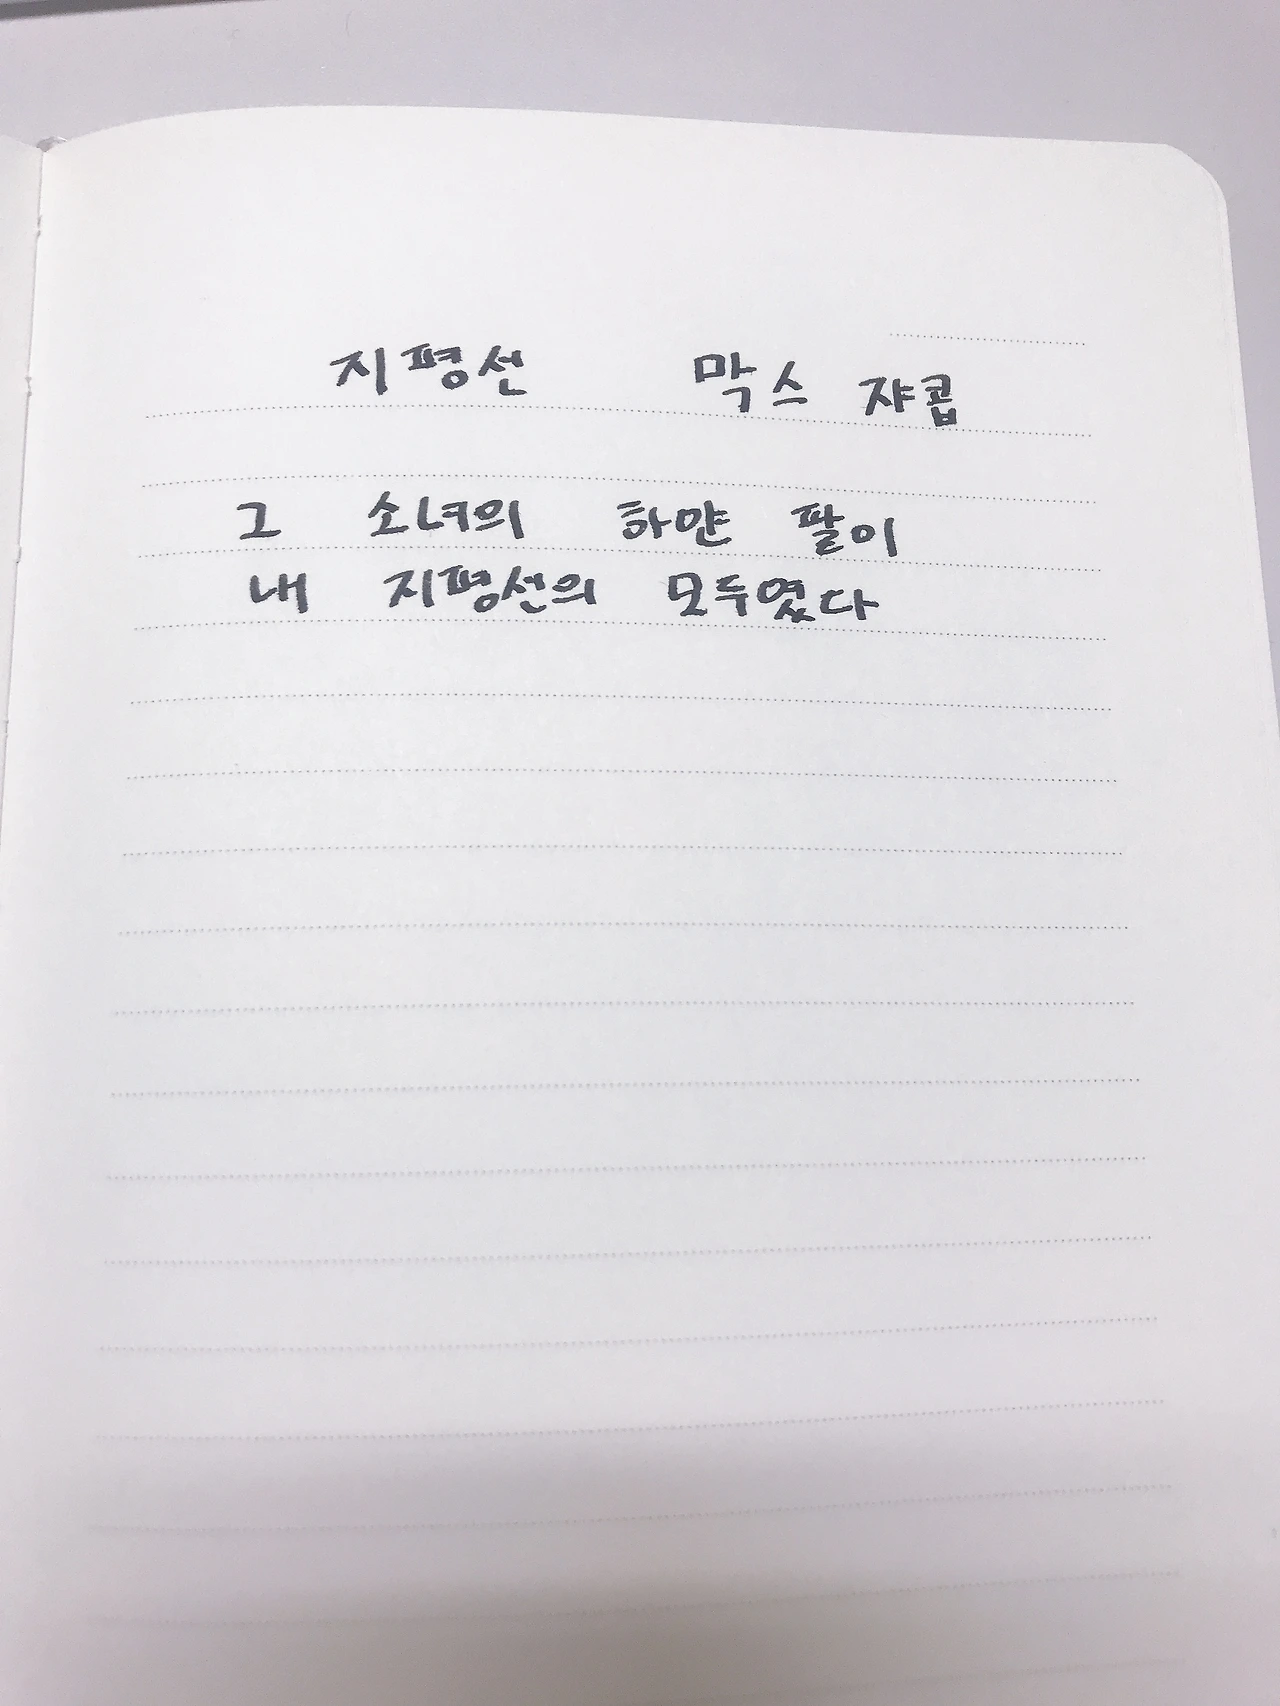 지평선 막스 쟈콥
그 소녀의 하얀 팔이
내 지평선의 모두였다